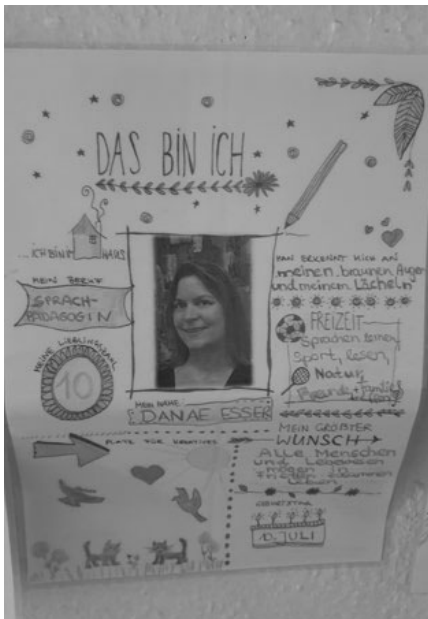 DAS BIN ICH
...ICH BIN IM HAUS
MEIN BERUF
SPRACH-
PÄDAGOGIN
MEINE LIEBLINGSZAHL
10
MEIN NAME
DANAE ESSER
MAN ERKENNT MICH AN
"meinen braunen Augen
und meinem Lächeln"
FREIZEIT
Sprachen lernen,
Sport, lesen,
Natur,
Freunde + Familie
PLATZ FÜR KREATIVES
MEIN GRÖßTER
WUNSCH
Alle Menschen
und Lebewesen
mögen in
Frieden zusammen
leben
GEBURTSTAG
10. JULI